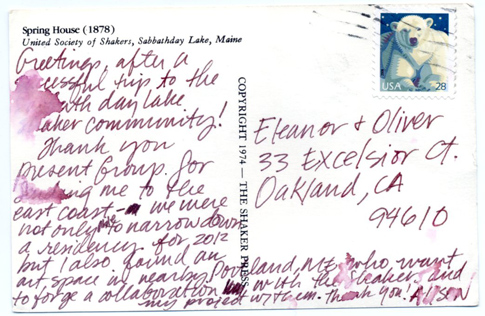 Spring House (1878)
United Society of Shakers, Sabbathday Lake, Maine
Greetings, after a
successful trip to the
day lake
community!
Thank you
Present Group. for
me to the
east coast - we were
not only to narrow down
a residency for 2012
but I also found an
art space in nearby Portland, ME, who want
to forge a collaboration with the Shakers and
my project with them. thank you! 
COPYRIGHT 1974 — THE SHAKER PRESS
USA
28
Eleanor + Oliver
33 Excelsior Ct.
Oakland, CA
94610